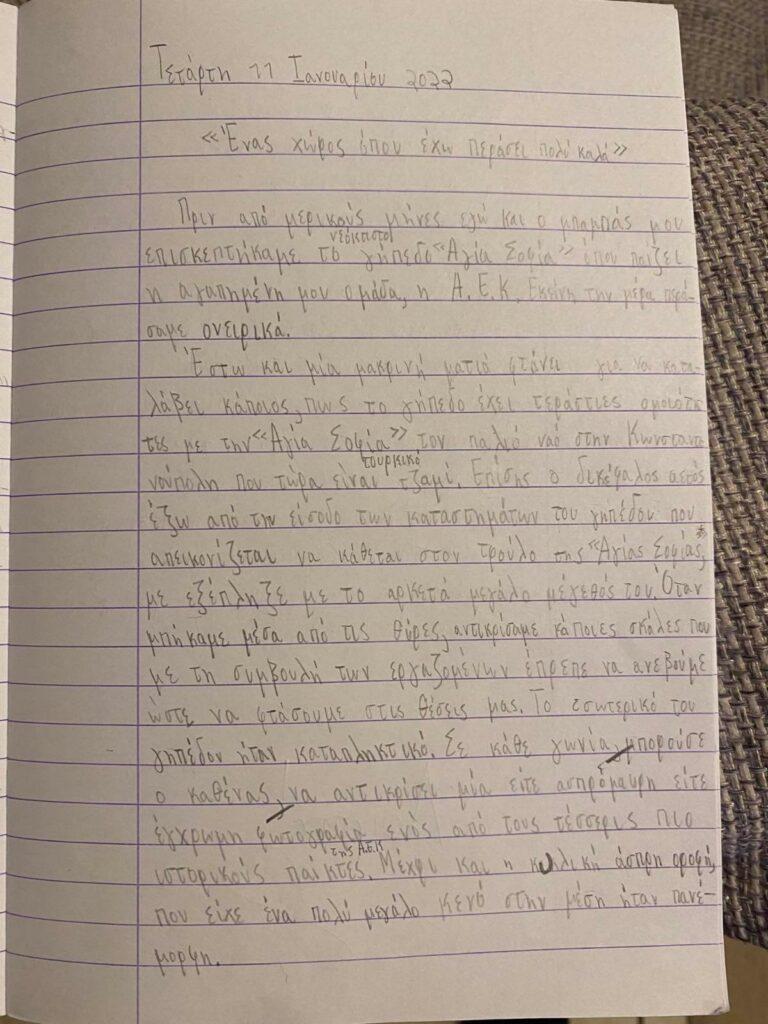 Τετάρτη 11 Ιανουαρίου 2022
«Ένας χώρος όπου έχω περάσει πολύ καλά»
Πριν από μερικούς μήνες εγώ και ο μπαμπάς μου
νεόκτιστο
επισκεπτήκαμε το γήπεδο «Αγία Σοφία» όπου παίζει
η αγαπημένη μου ομάδα, η Α.Ε.Κ. Εκείνη την μέρα περά-
σαμε ονειρικά.
Έστω και μία μακρινή ματιά φτάνει για να κατα-
λάβει κάποιος, πως το γήπεδο έχει τεράστιες ομοιότη
τες με την «Αγία Σοφία» τον παλιό ναό στην Κωνσταντι
τουρκικό
νούπολη που τώρα είναι τζαμί. Επίσης ο δικέφαλος αετός
έξω από την είσοδο των καταστημάτων του γηπέδου που
απεικονίζεται να κάθεται στον τρούλο της «Αγίας Σοφίας»,
με εξέπληξε με το αρκετά μεγάλο μέγεθός του. Όταν
μπήκαμε μέσα από τις θύρες, αντικρίσαμε κάποιες σκάλες που
με τη συμβουλή των εργαζομένων έπρεπε να ανεβούμε
ώστε να φτάσουμε στις θέσεις μας. Το εσωτερικό του
γηπέδου ήταν καταπληκτικό. Σε κάθε γωνία, μπορούσε
ο καθένας, να αντικρίσει μία είτε ασπρόμαυρη είτε
έγχρωμη φωτογραφία ενός από τους τέσσερις πιο
της Α.Ε.Κ
ιστορικούς παίκτες. Μέχρι και η κυλική άσπρη οροφή,
που είχε ένα πολύ μεγάλο κενό στην μέση ήταν πανέ-
μορφη.